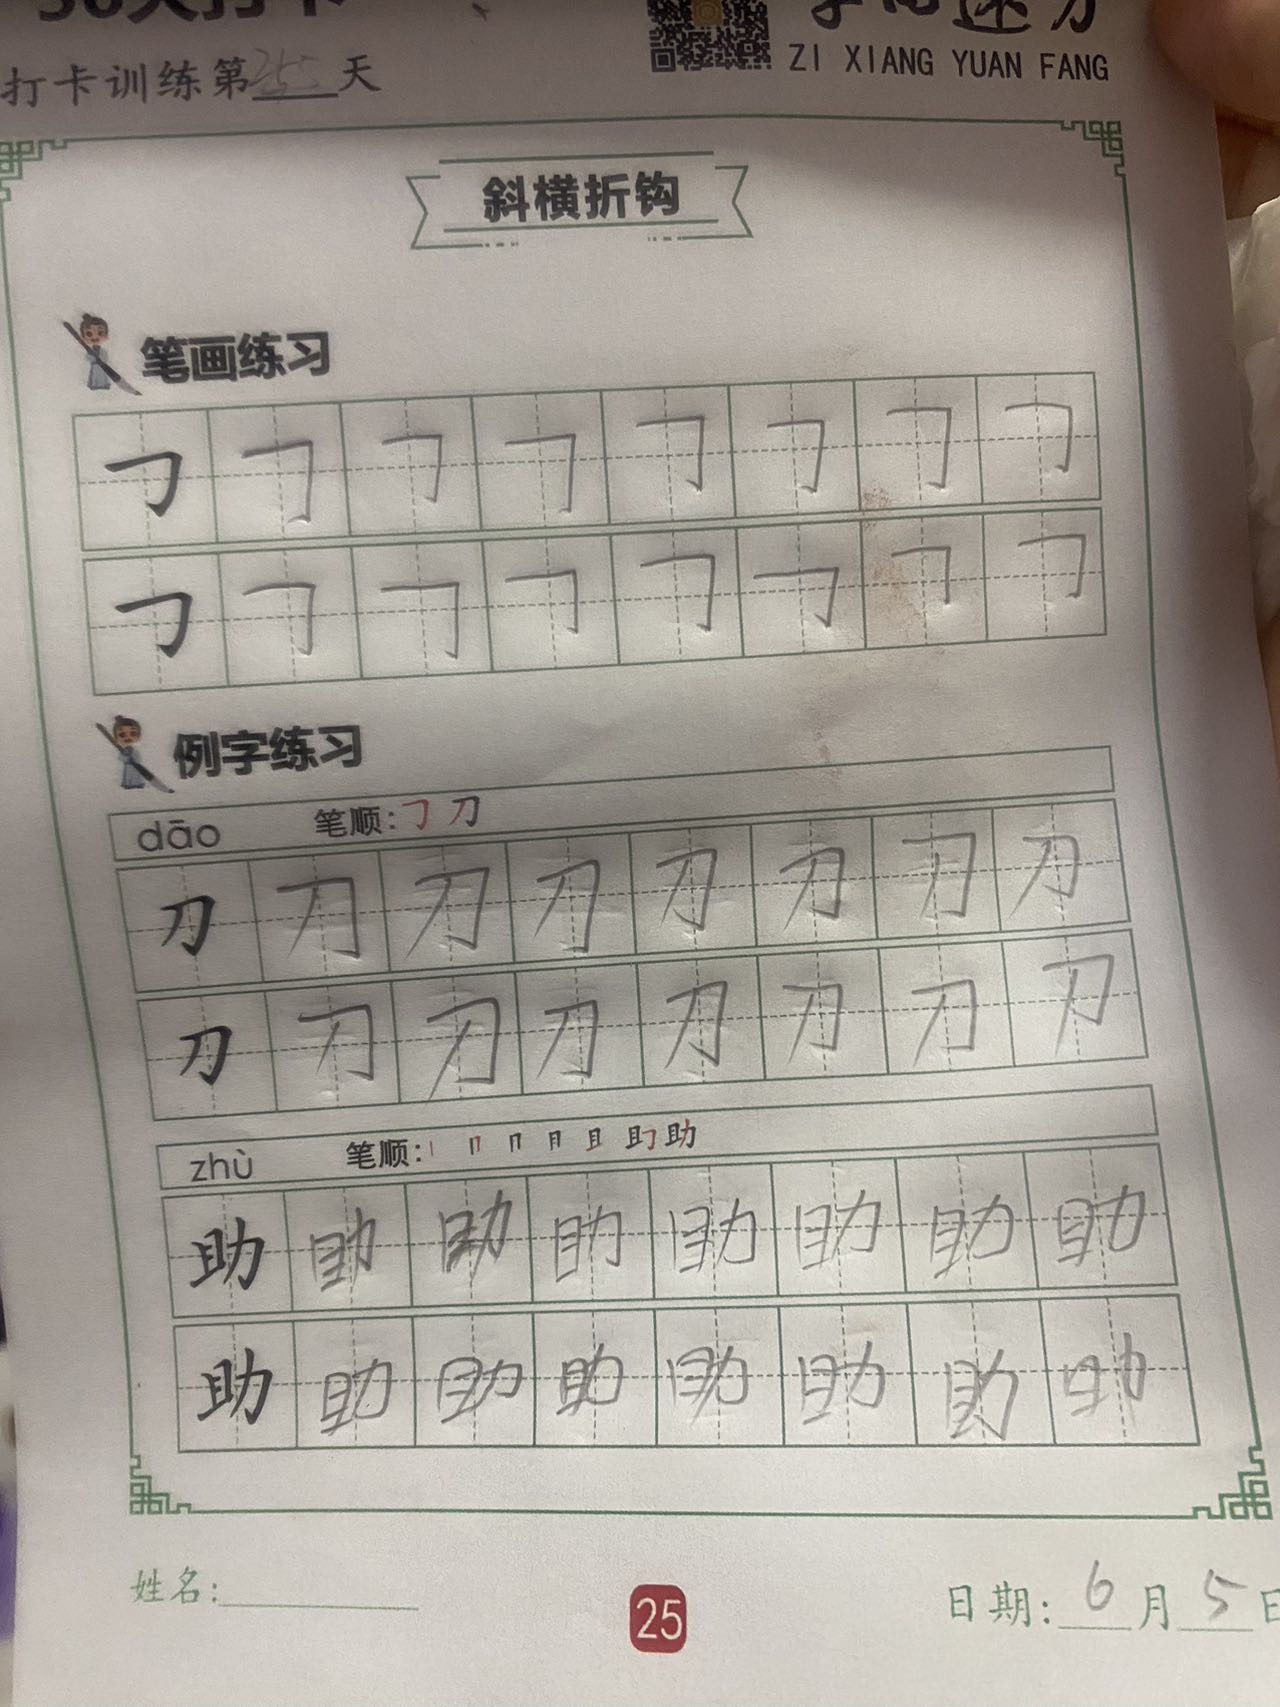 30天打卡
字向远方
ZI XIANG YUAN FANG
打卡训练第255天
斜横折钩
笔画练习
㇆ ㇆ ㇆ ㇆ ㇆ ㇆ ㇆ ㇆
㇆ ㇆ ㇆ ㇆ ㇆ ㇆ ㇆ ㇆
例字练习
dāo 笔顺: ㇆ 刀
刀 刀 刀 刀 刀 刀 刀 刀
刀 刀 刀 刀 刀 刀 刀 刀
zhù 笔顺: 助
助 助 助 助 助 助 助 助
助 助 助 助 助 助 助 助
姓名:
25
日期: 6月5日